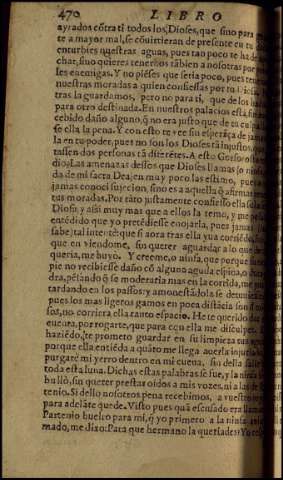 470 LIBRO
ayrados cõtra ti todos los Dioses, que sino para
te a mayor mal, se cõuirtieran de presente en tu
enturbies nuestras aguas, pues tan poco te ha de
char, sino quieres tenernos tãbien a nosotras por
les enemigas. Y no piẽses que seria poco, pues
nuestras moradas a quien confiessas por tu Diosa
tras la guardamos, pero no para ti, que de los
para otro destinada. En nuestros palacios està,
cebido daño alguno, q̃ no era justo que de tu culpa
se ella la pena. Y con esto te vee sin esperãça de
la en tu poder, pues no son los Dioses tã injustos, que
tassen dos personas tã diferẽtes. A esto Gorforosto
dio: Las amenazas dessos que Dioses llamas
da de mi sacra Dea, en muy poco las estimo, pues
jamas conoci sujecion, sino es a aquella q̃ afirmas
tus moradas. Por tãto justamente confiesso ella sola
Diosa, y assi muy mas que a ellos la temo, y me
entẽdido que yo precediesse enojarla, pues jamas
sabe) tal intẽtè: que si aora tras ella yua corriẽdo,
que en viendome, sin querer aguardar a lo que
queria, me huyò. Y creeme, o ninfa, que porque su
pie no recibiesse daño cõ alguna aguda espina, o
dra, pẽsando q̃ se moderaria mas en la corrida, me
tardando en los passos: y amonestãdola se detuuiesse
pues los mas ligeros gamos en poca distãcia son
sos, no corriera ella tanto espacio. He te querido dar
cuenta, por rogarte, que para con ella me disculpes.
haziẽdo, te prometo guardar en su limpieza tus aguas
porque ella entiẽda a quãto me llega auerla injuriado
purgarè mi yerro dentro en mi cueua, sin della salir
toda esta luna. Dichas estas palabras se fue, y la ninfa
bullò, sin querer prestar oidos a mis vozes, ni a las de
tenio. Si dello nosotros pena recebimos, a vuestro
para adelãte quede. Visto pues quã escusado era llamarla
Partenio buelto para mi, q̃ yo primero a la ninfa
mado, me dixo: Para que hermano la querias de? Yo